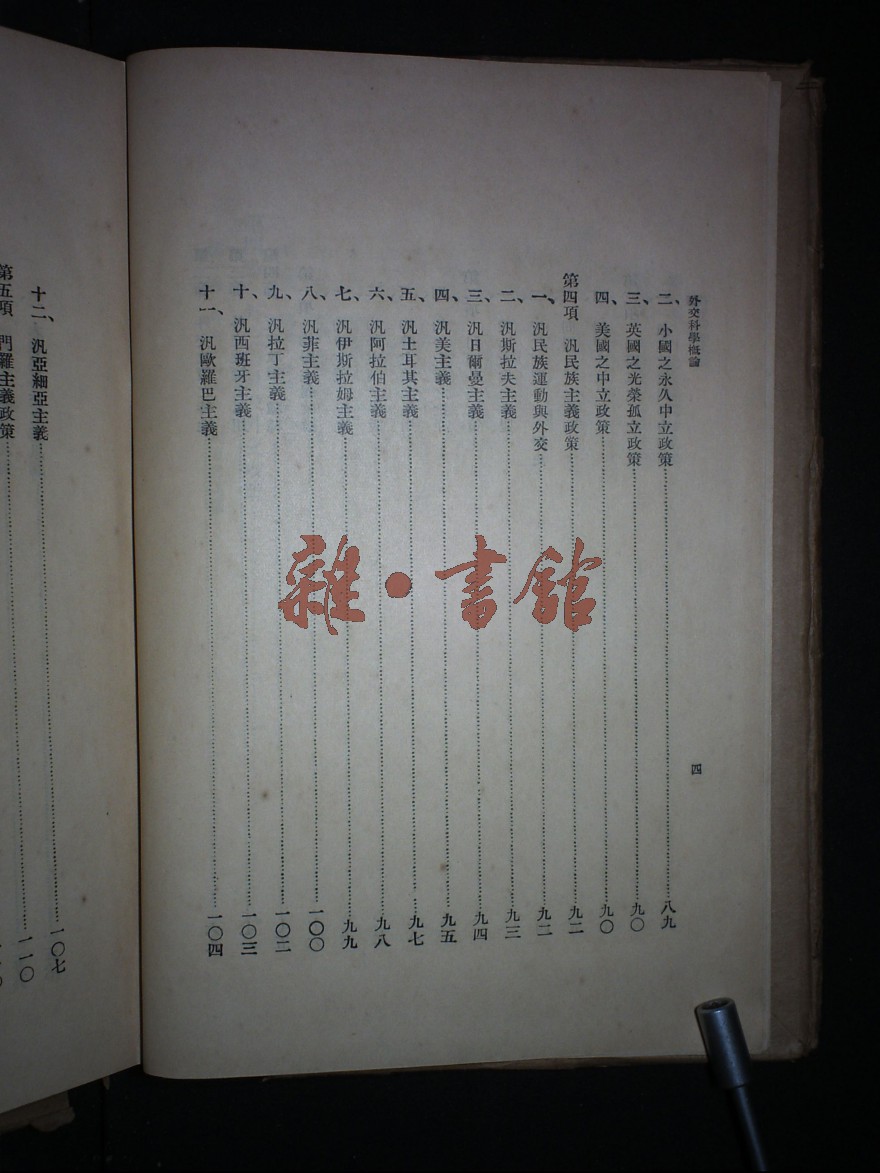 外交科學概論
四
二、小國之永久中立政策……八九
三、英國之光榮孤立政策……九〇
四、美國之中立政策……九〇
第四項 汎民族主義政策……九二
一、汎民族運動與外交……九二
二、汎斯拉夫主義……九三
三、汎日爾曼主義……九四
四、汎美主義……九五
五、汎土耳其主義……九七
六、汎阿拉伯主義……九八
七、汎伊斯拉姆主義……九九
八、汎菲主義……一〇〇
九、汎拉丁主義……一〇二
十、汎西班牙主義……一〇三
十一、汎歐羅巴主義……一〇四
十二、汎亞細亞主義……一〇七
第五項 門羅主義政策……一一〇
雜·書館